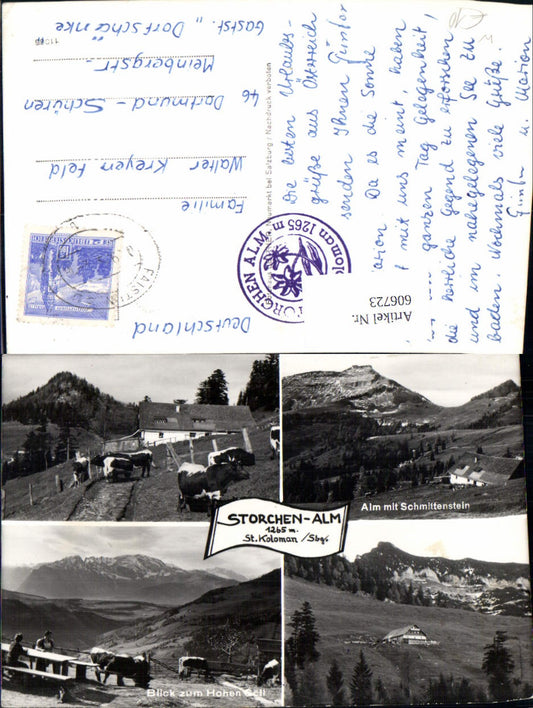 Die besten Urlaubs-
grüße aus Österreich
senden Ihnen Günter
Da es die Sonne
mit uns meint, haben
ganzen Tag Gelegenheit,
die herrliche Gegend zu erforschen
und im nahegelegenen See zu
baden. Nochmals viele Grüße.
Günter u. Marion
STORCHEN ALM
1265 m
Artikel Nr.
606723
Neumarkt bei Salzburg / Nachdruck verboten
Deutschland
Familie
Walter Kreyenfeld
46 Dortmund-Schüren
Meinbergstr.
Gastst. „Dorfschänke
STORCHEN-ALM
1265 m.
St. Koloman /Sbg.
Alm mit Schmittenstein
Blick zum Hohen Göll